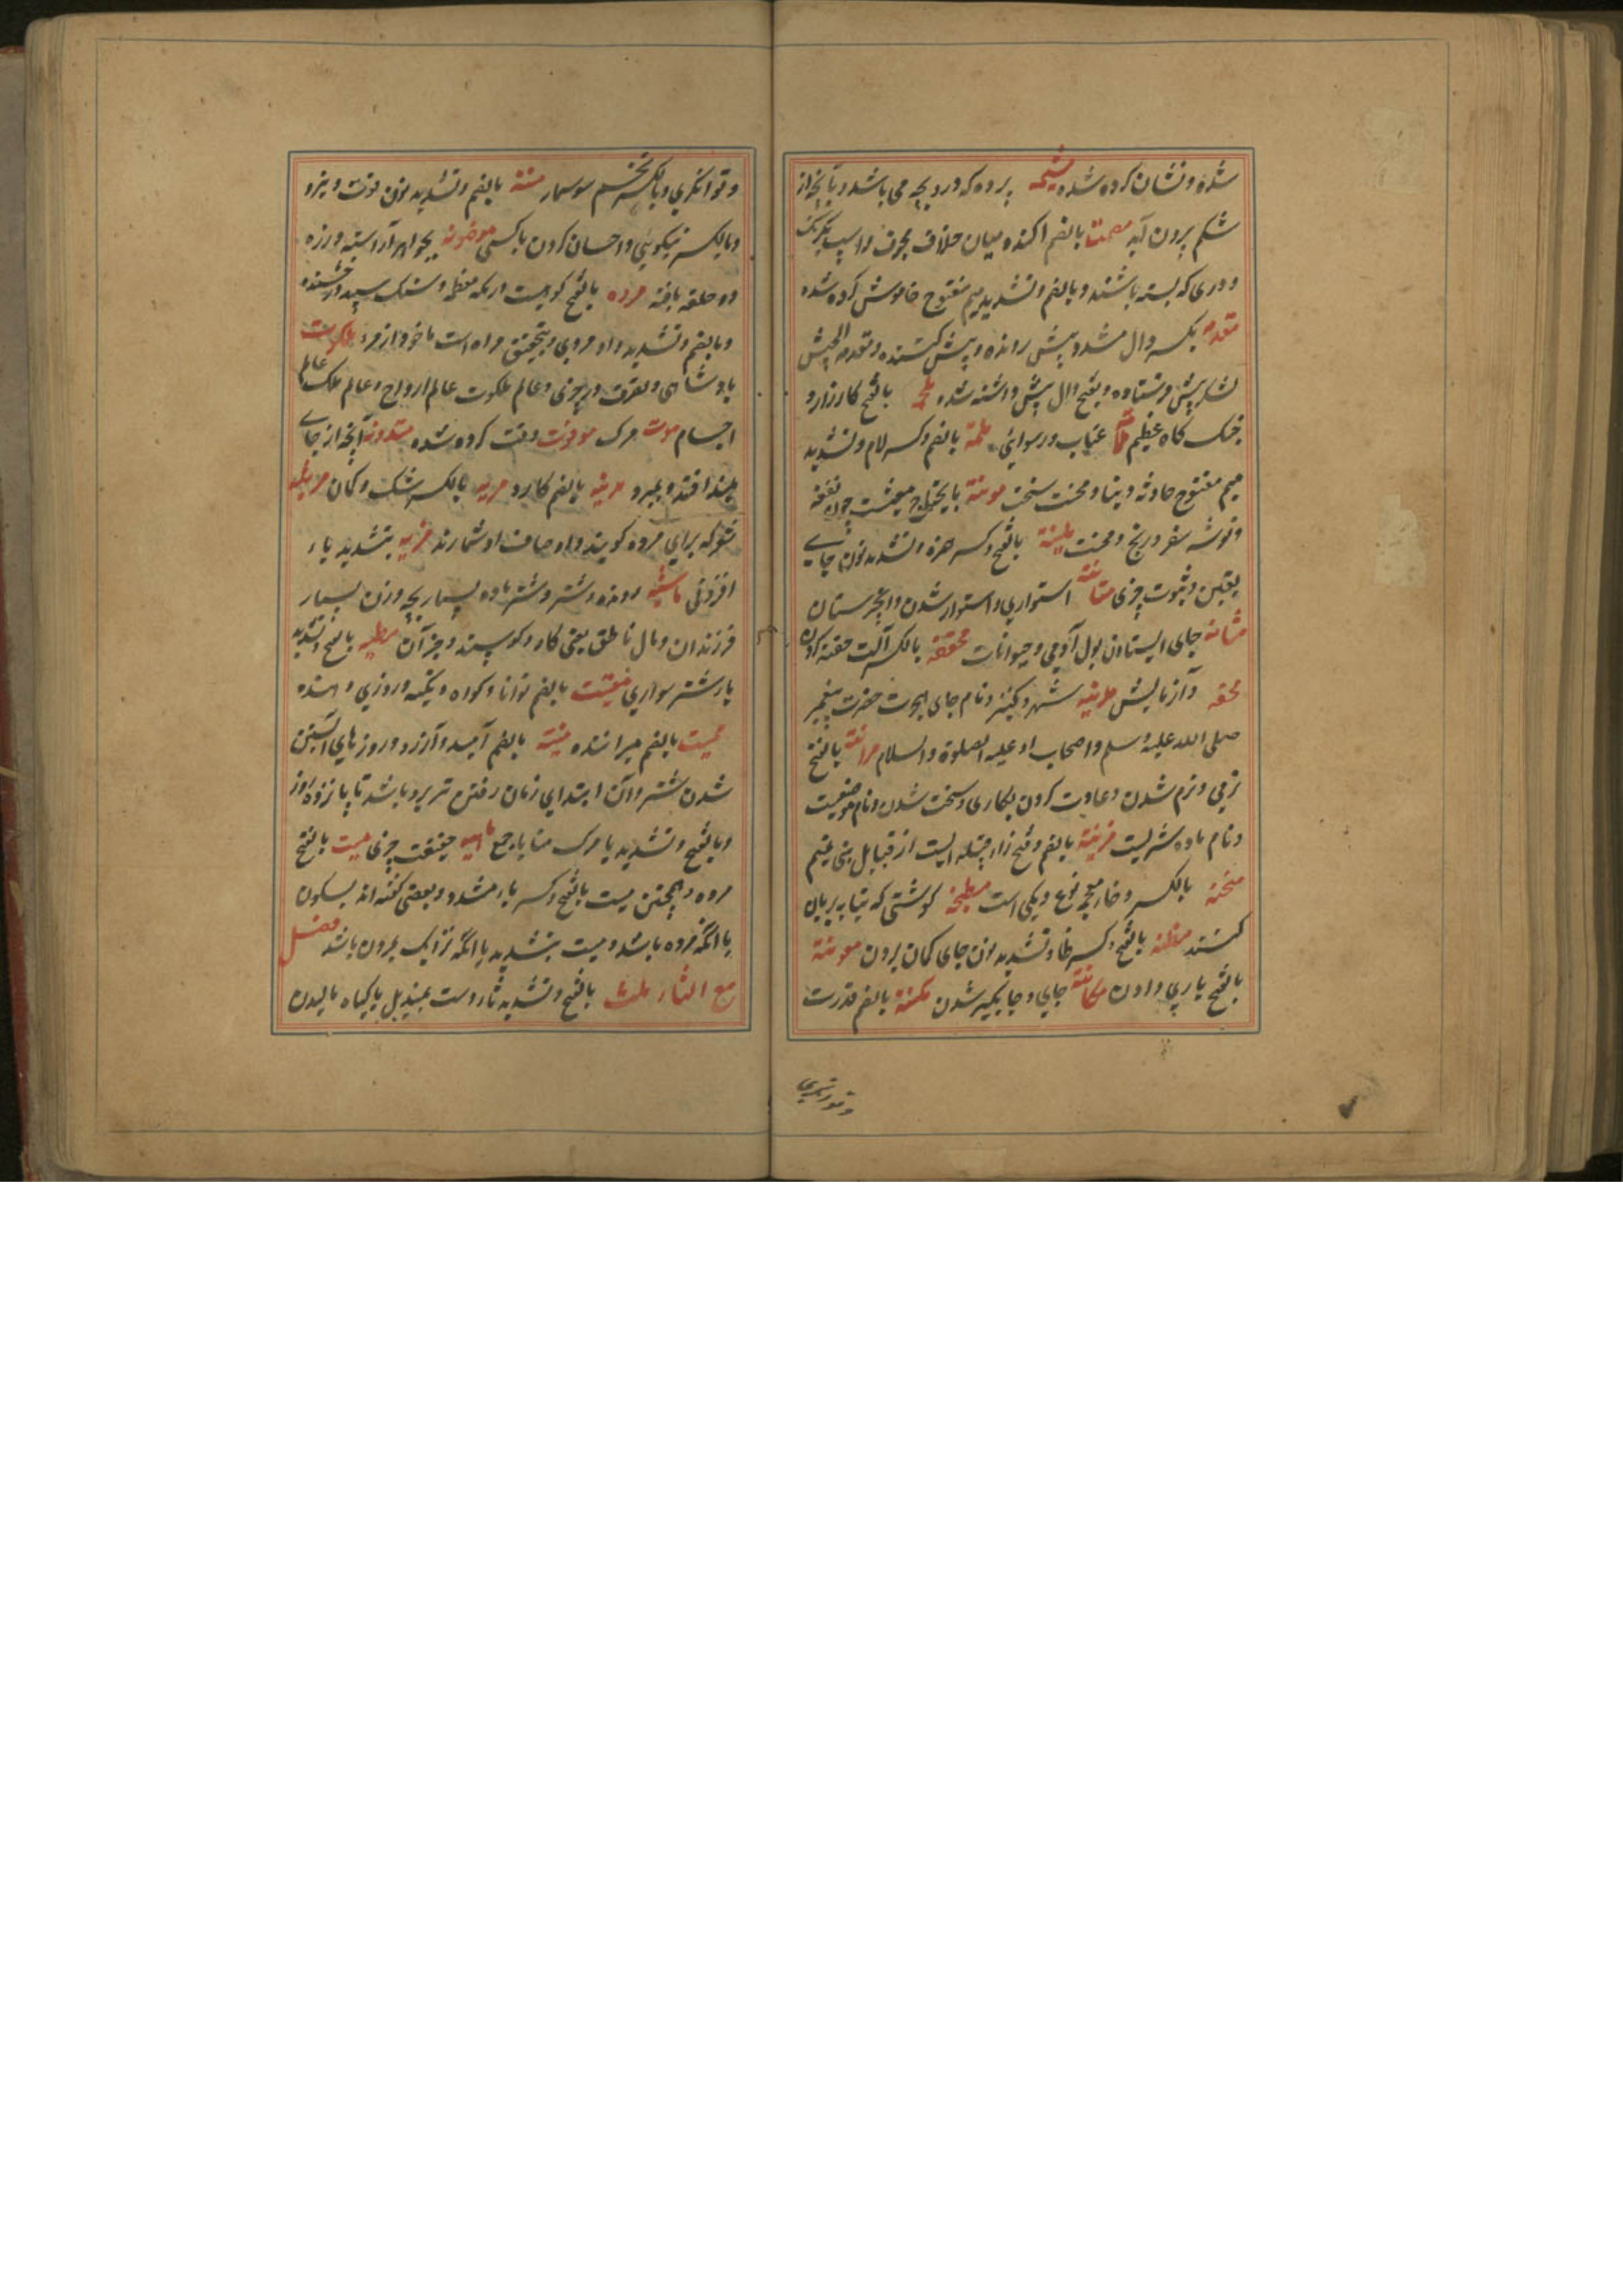 شده و نشان کرده شده مشیمه پرده که درو بچه می باشد و با بچه از
شکم برون آید مصمت بالضم اکنده میان خلاف مجوف و اسپ یکرنگ
و دری که بسته باشند و بالضم و تشدید میم مفتوح خاموش کرده شده
مقدمه بکسر دال مشدد پیش رونده و پیش کننده و مقدمه الجیش
لشکر پیش فرستاده و بفتح دال پیش داشته شده ملحمه بالفتح کارزار و
جنگ کاه عظیم عتاب و رسوائی ملمة بالضم و کسر لام و تشدید
میم مفتوح حادثه دنیا و محنت سخت مونة مایحتاج معیشت چون نفقه
و توشه سفر و رنج و محنت بالفتح و کسر همزه و تشدید نون جاے
یقین و ثبوت چیزی متانة استواری و استوار شدن و انجیرستان
مثانه جای ایستادن بول آدمی و حیوانات محقنه بالکسر آلت حقنه کردن
و آزمایش مدینه شهر و کنیز و نام جای هجرت حضرت پیغمبر
صلی الله علیه وسلم و اصحاب او علیه الصلوة والسلام مرانة بالفتح
نرمی و نرم شدن و عادت کردن بکاری و سخت شدن و نام موضعیست
و نام ماده شتریست مزینة بالضم و فتح زا قبیله ایست از قبایل بنی
بالکسر و خاء معجمه نوع دیکی است مطجنه کوشتی که بتابه بریان
کنند مظنه بالفتح و کسر ظا و تشدید نون جای کمان بردن معونة
بالفتح یاری دادن مکانة جای و جایکیر شدن مکنة بالضم قدرت
و توانکری
و توانکری و بالکسر تخم سوسمار منة بالضم و تشدید نون قوت و نیرو
و بالکسر نیکوئی و احسان کردن با کسی موضونه بجواهر آراسته و زره
دو حلقه بافته مروه بالفتح کوهیست در مکه معظمه و سنک سپید درخشنده
و بالضم و تشدید واو مروی و بتحقیق مراه است ماخوذ از مرء ملکوت
پادشاهی و تصرف در چیزی و عالم ملکوت عالم ارواح و عالم ملک عالم
اجسام موت مرک موقوت وقت کرده شده متردیه آنچه از جاے
بلند افتد و بمیرد مدیه بالضم کارد مریه بالکسر شک و کمان مرثیه
شعر که برای مرده کویند و اوصاف او شمارند مزیه بتشدید یاء
افزونی ماشیه رونده و شتر و شتر ماده بسیار بچه و زن بسیار
فرزندان و مال ناطق یعنی کاو و کوسپند و جز آن مطیه بالفتح و تشدید
یا شتر سواری مقیت بالضم توانا و کواه و نکهبان و روزی دهنده
ممیت بالضم میراننده منیة بالضم آمید و آرزو و روزهای آبستن
شدن شتر و آن ابتدای زمان رفتن نر برو باشد تا پانزده روز
و بالفتح و تشدید یا مرک منایا جمع ماهیه حقیقت چیزی میت بالفتح
مرده و همچنین میت بالفتح و کسر یاء مشدد و بعضی کفته اند بسکون
یا آنکه مرده باشد و میت بتشدید یا آنکه نزدیک بمردن باشد فصل
مع الثاء بالفتح و تشدید ثا دست بمندیل یا کیاه مالیدن